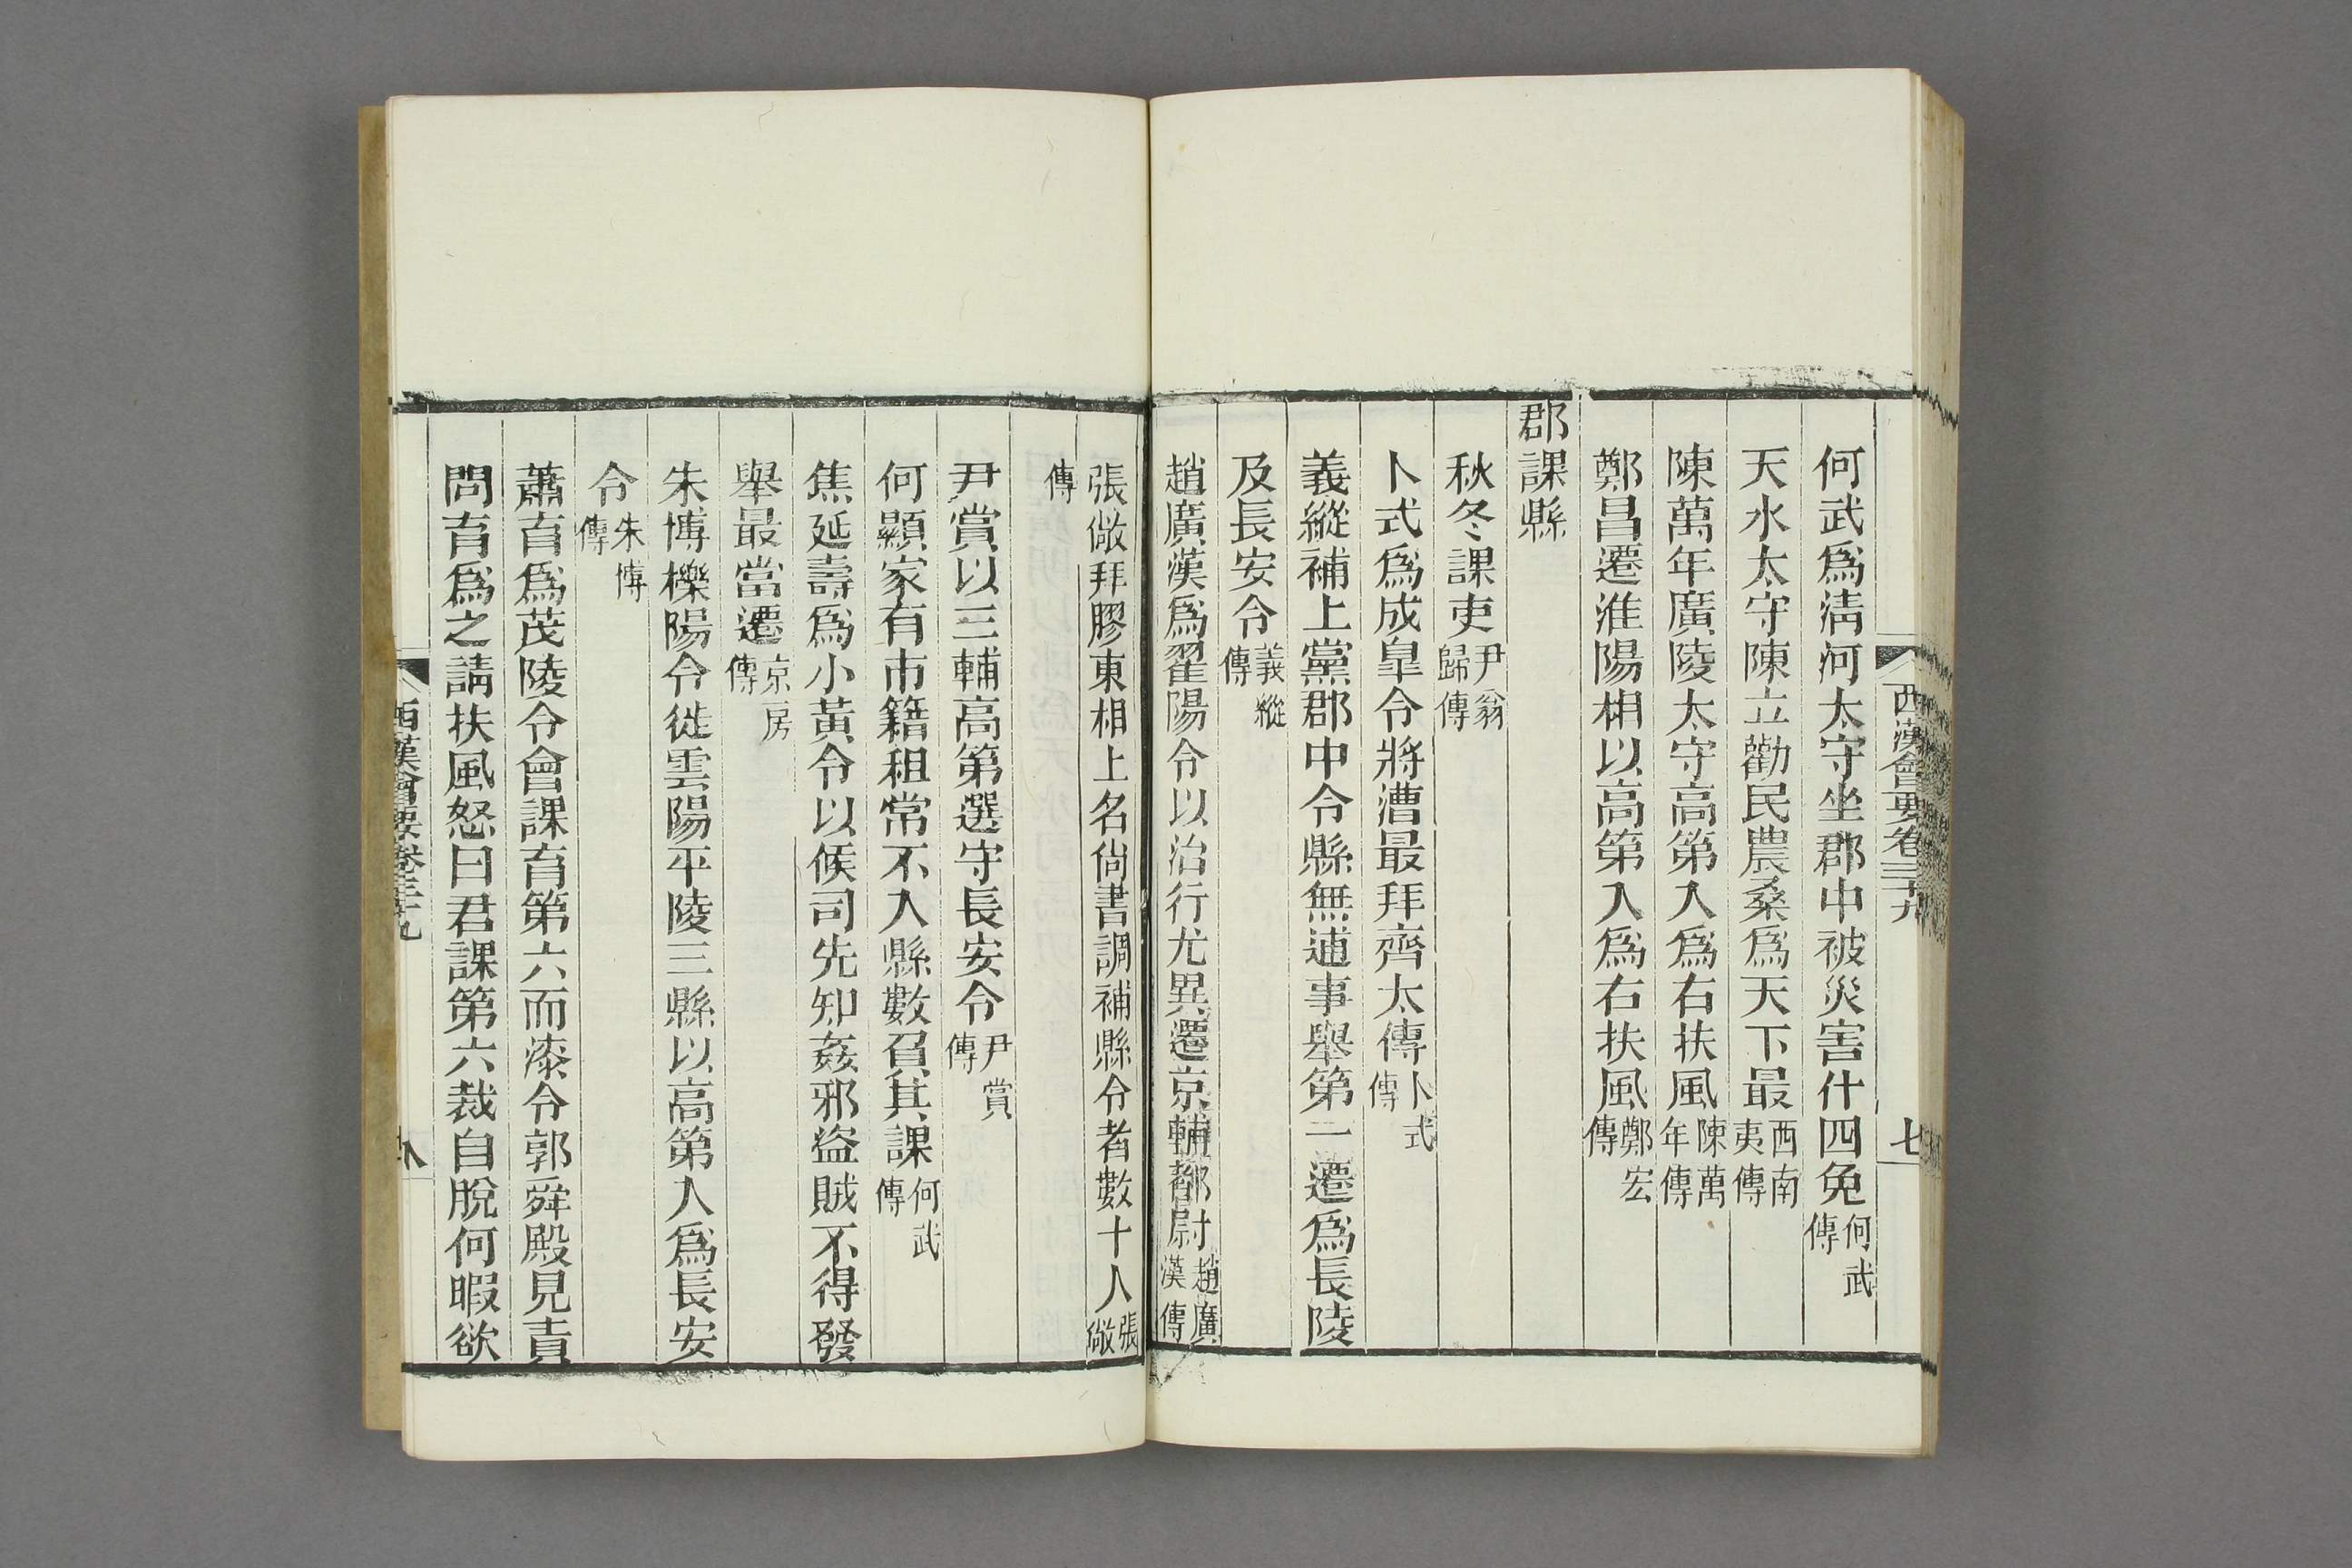 西漢會要卷三十九
七
何武爲淸河太守坐郡中被災害什四免何武傳
天水太守陳立勸民農桑爲天下最西南夷傳
陳萬年廣陵太守高第入爲右扶風陳萬年傳
鄭昌遷淮陽相以高第入爲右扶風鄭宏傳
郡課縣
秋冬課吏尹翁歸傳
卜式爲成皐令將漕最拜齊太傅卜式傳
義縱補上黨郡中令縣無逋事舉第一遷爲長陵
及長安令義縱傳
趙廣漢爲翟陽令以治行尤異遷京輔都尉趙廣漢傳
張敞拜膠東相上名尙書調補縣令者數十人張敞
傳
尹賞以三輔高第選守長安令尹賞傳
何顯家有市籍租常不入縣數負其課何武傳
焦延壽爲小黃令以候司先知姦邪盜賊不得發
舉最當遷京房傳
朱博櫟陽令徙雲陽平陵三縣以高第入爲長安
令朱博傳
蕭育爲茂陵令會課育第六而漆令郭舜殿見責
問育爲之請扶風怒曰君課第六裁自脫何暇欲
西漢會要卷三十九
八